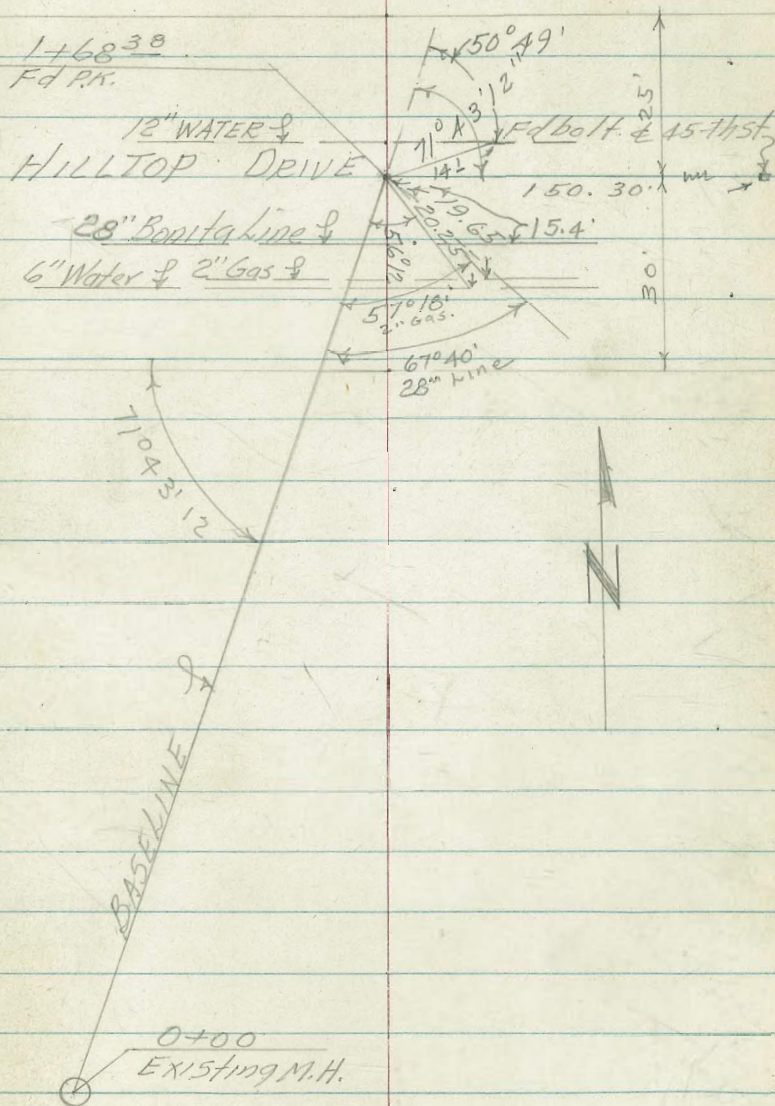 1+68 38
Fd P.K.
50°49'
25'
12" WATER ℄
71°43'12"
Fd bolt ℄ 45th st
HILLTOP DRIVE
14.1
150.30'
28" Bonita Line ℄
19.65
15.4'
20.25
6" Water ℄ 2" Gas ℄
56°12'
30'
57°18'
2" Gas.
67°40'
28" Line
71°43'12
N
BASELINE
0+00
Existing M.H.